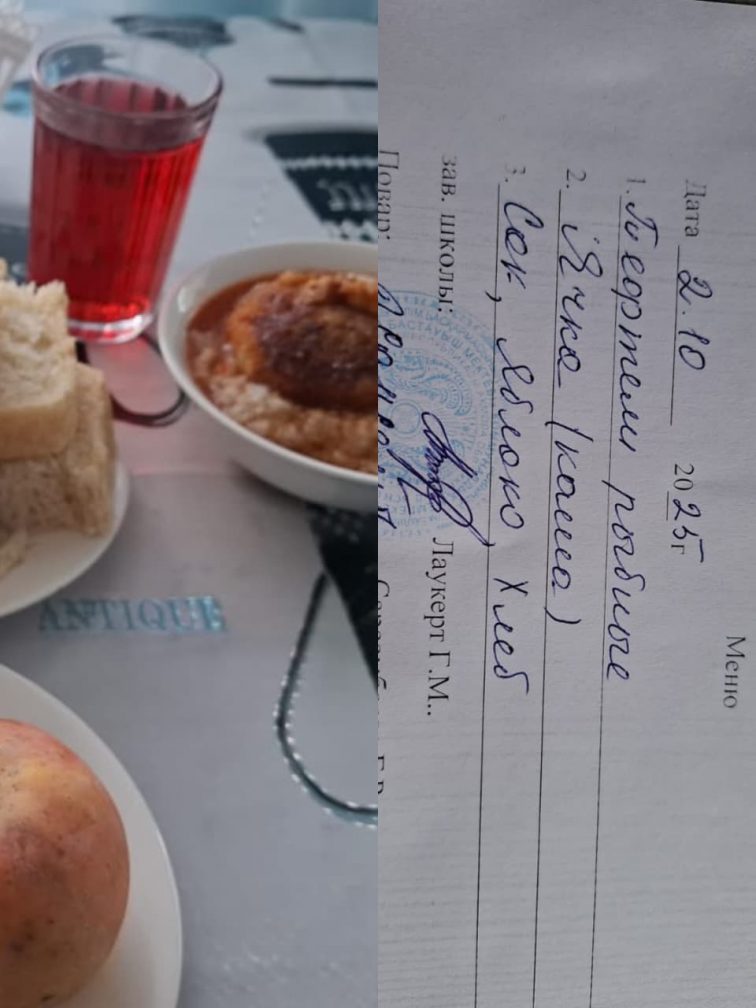 ANTIQUE
Меню
Дата 2.10 2025г
1. Тефтели рыбные
2. Ячка (каша)
3. Сок, яблоко, хлеб
зав. школы: Лаукерт Г.М..
Повар:
БАСТАУЫШ МЕКТЕ